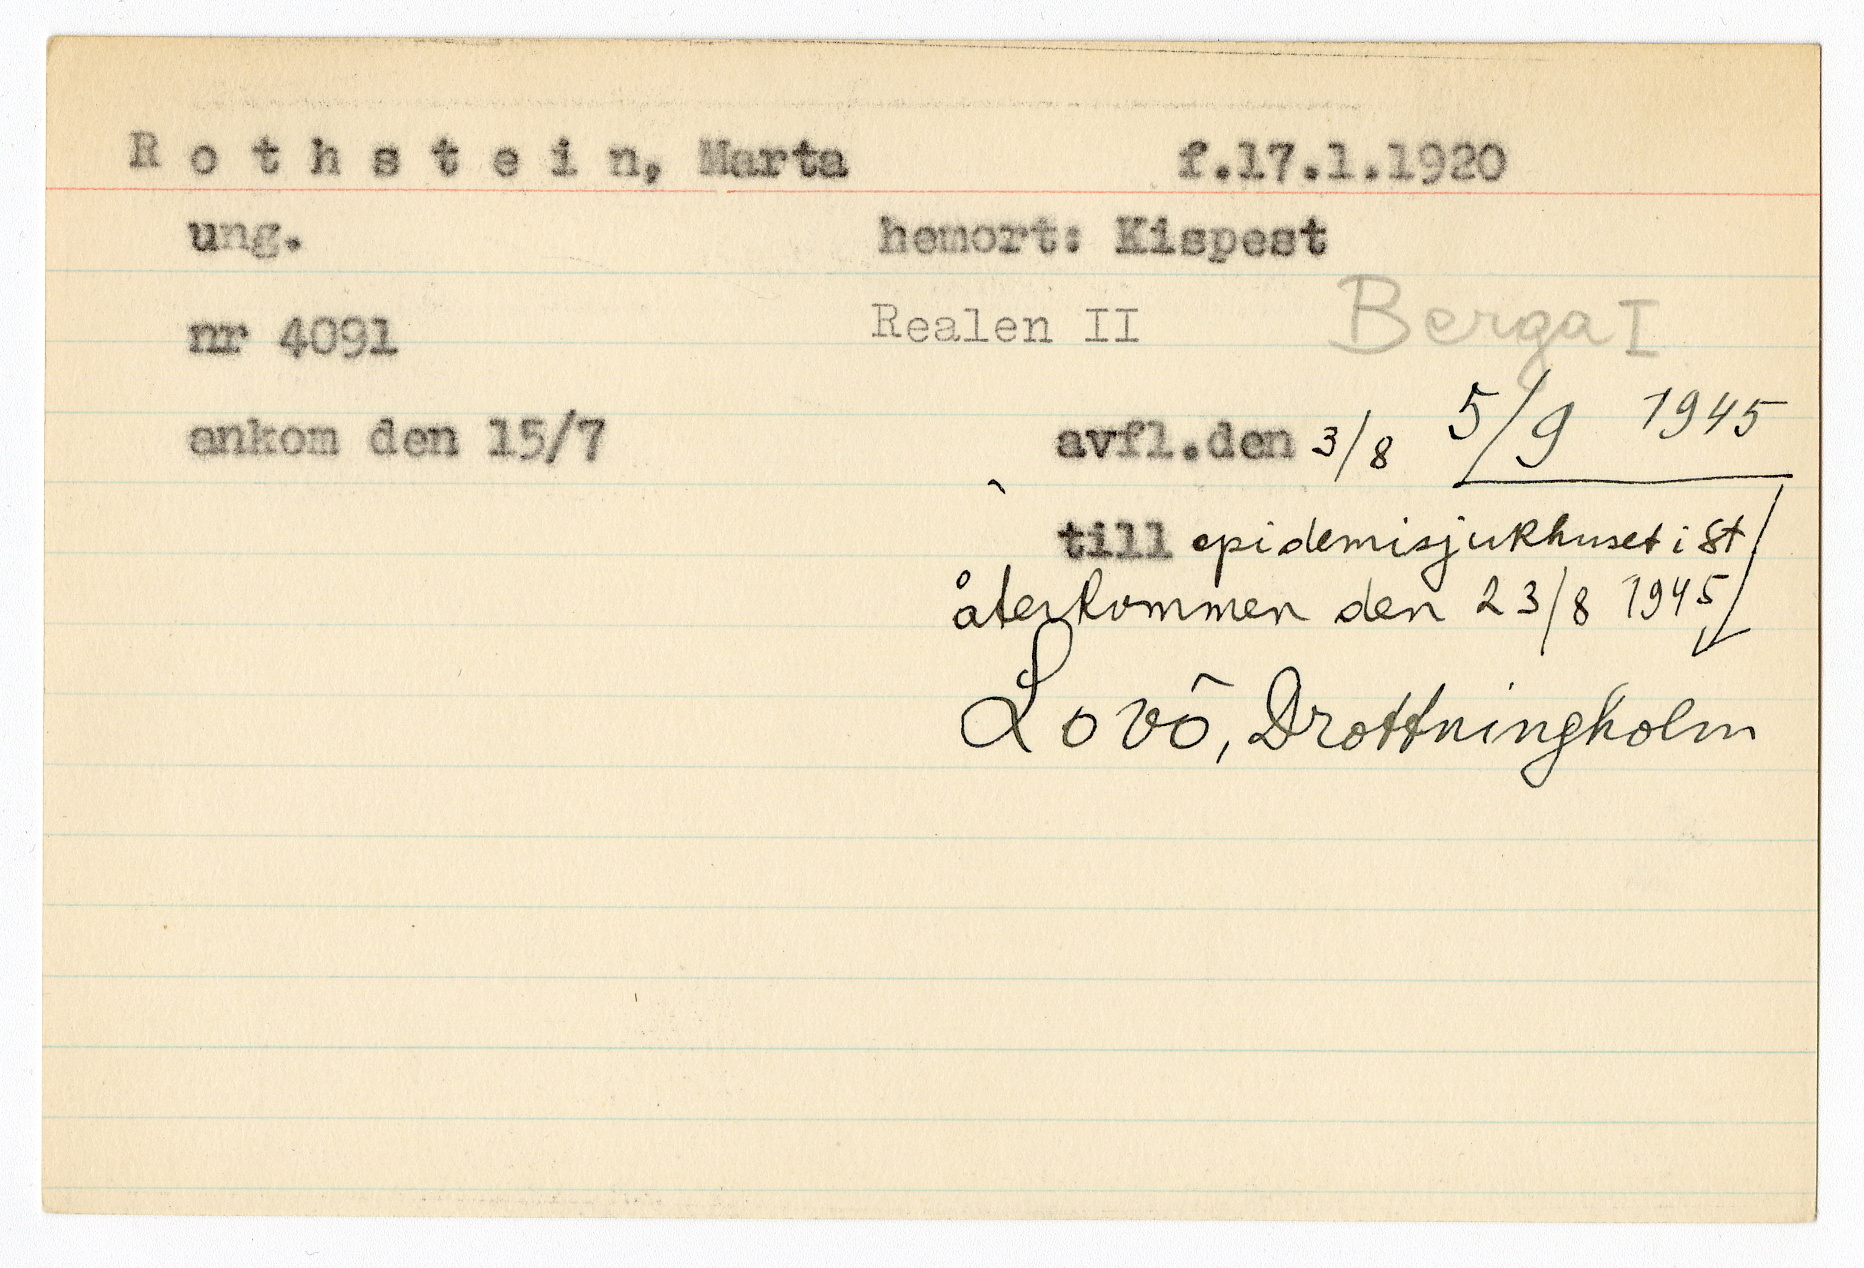 Rothstein, Marta f.17.1.1920
ung. hemort: Kispest
nr 4091 Realen II Berga I
ankom den 15/7 avfl.den 3/8 5/9 1945
till epidemisjukhuset i St
återkommen den 23/8 1945
Lovö, Drottningholm